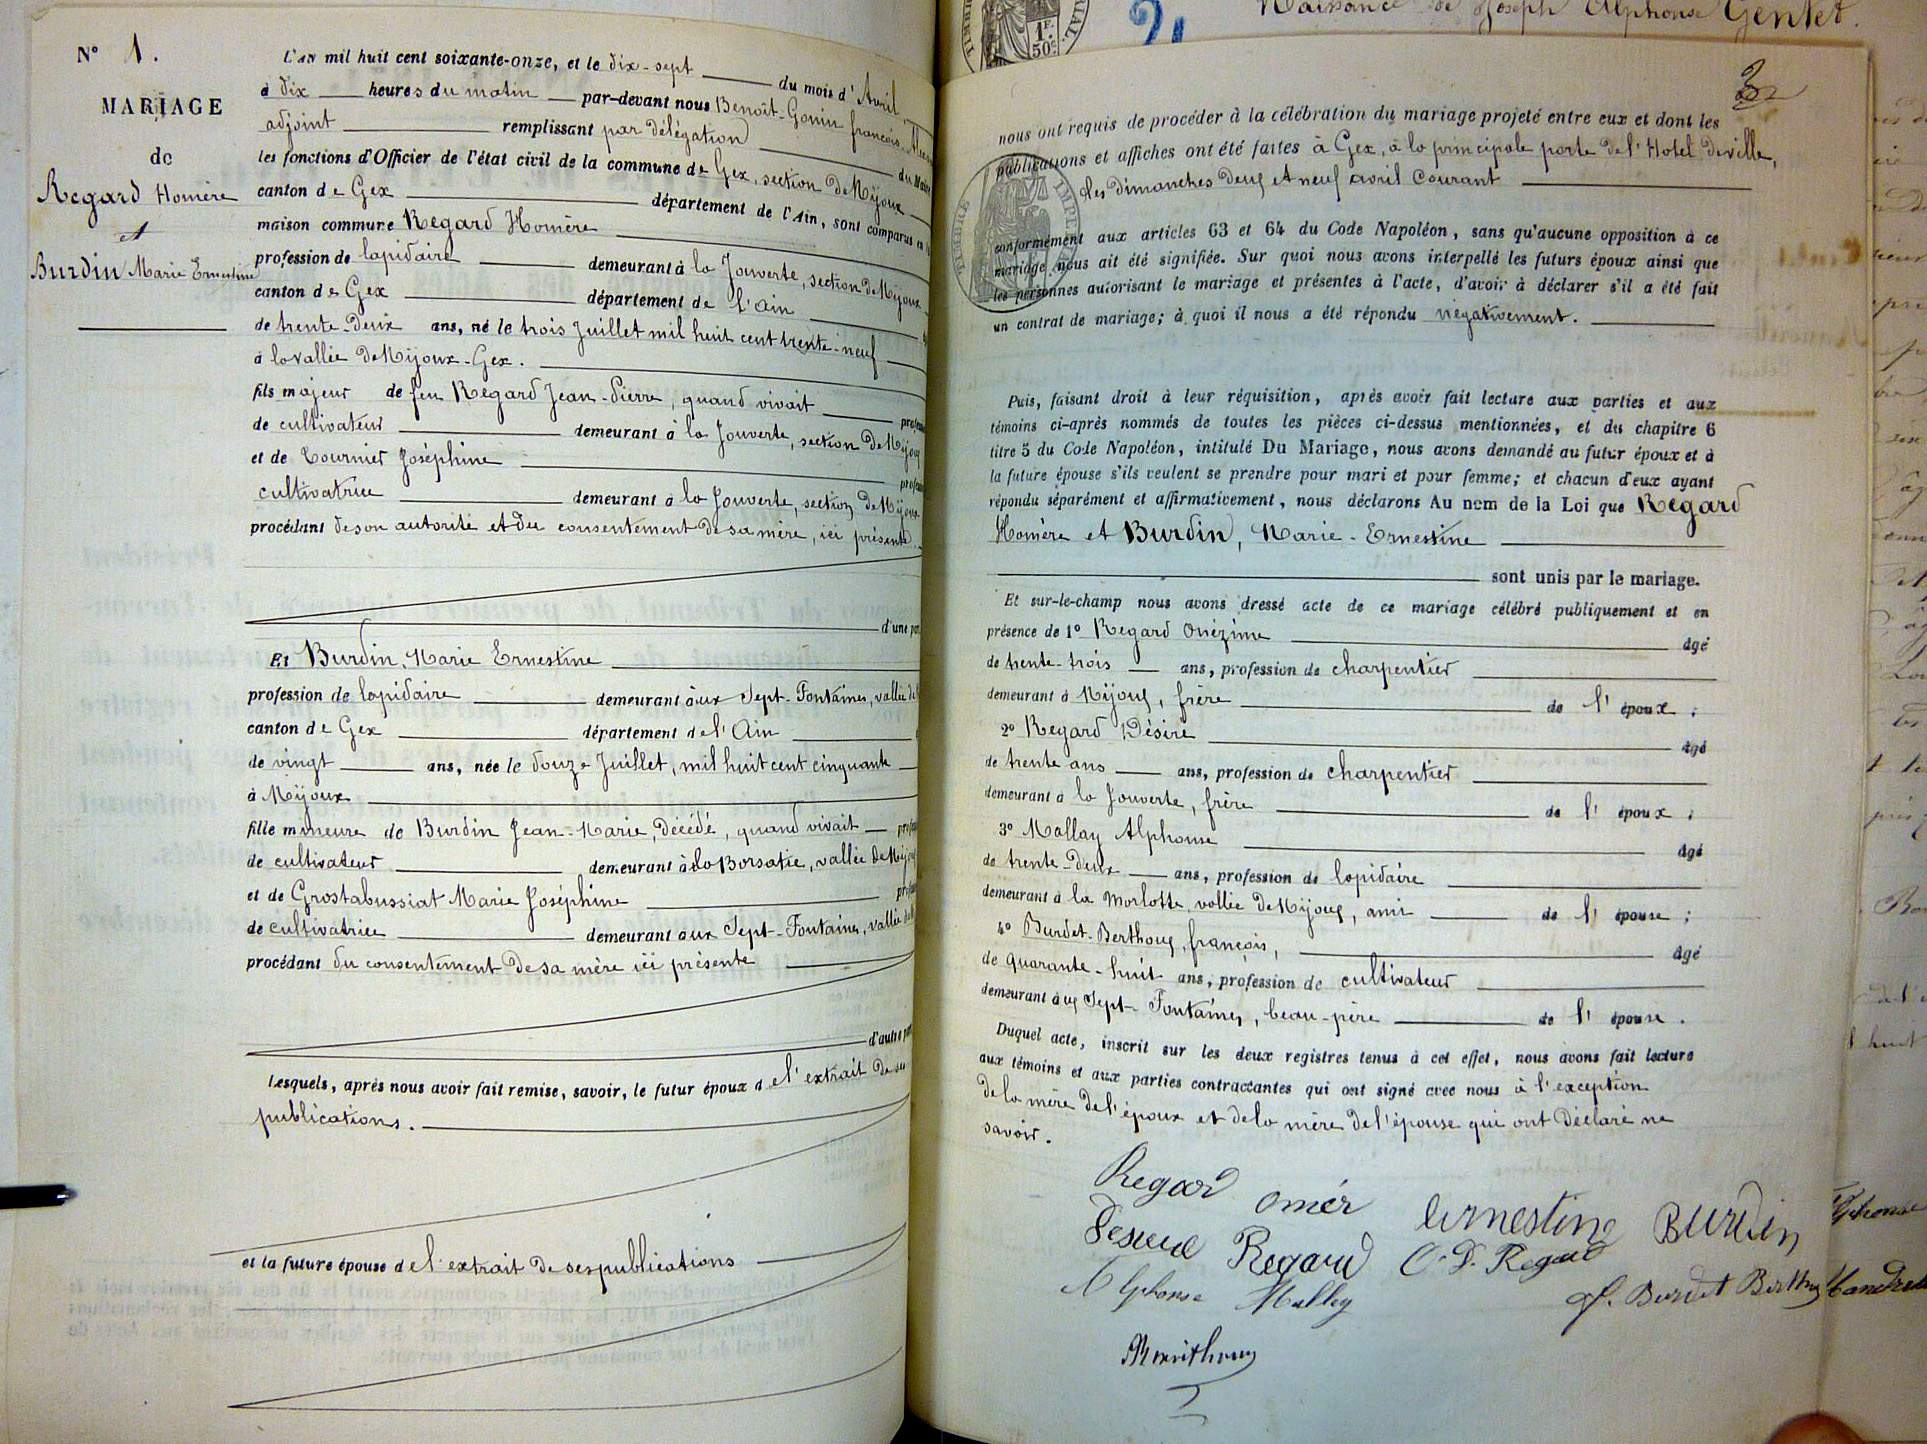 N° 1.
MARIAGE
de
Regard Homère
et
Burdin Marie Ernestine
L'AN mil huit cent soixante-onze, et le dix-sept du mois d'Avril
à dix heures du matin par-devant nous Benoit-Gonin françois
adjoint remplissant par délégation du Maire
les fonctions d'Officier de l'état civil de la commune de Gex, section de Mijoux
canton de Gex département de l'Ain, sont comparus en la
maison commune Regard Homère
profession de lapidaire demeurant à la Jouverte, section de Mijoux
canton de Gex département de l'Ain
de trente-deux ans, né le trois Juillet mil huit cent trente-neuf
à la vallée de Mijoux-Gex.
fils majeur de feu Regard Jean-Pierre, quand vivait
de cultivateur demeurant à la Jouverte, section de Mijoux
et de Tournier Joséphine
cultivatrice demeurant à la Jouverte, section de Mijoux
procédant de son autorité et du consentement de sa mère, ici présente
d'une part
Et Burdin, Marie Ernestine
profession de lapidaire demeurant aux Sept-Fontaines, vallée de
canton de Gex département de l'Ain
de vingt ans, née le douze Juillet, mil huit cent cinquante
à Mijoux
fille mineure de Burdin Jean-Marie, décédé, quand vivait
de cultivateur demeurant à la Borsatie, vallée de Mijoux
et de Grostabussiat Marie Joséphine
de cultivatrice demeurant aux Sept-Fontaines, vallée de
procédant du consentement de sa mère ici présente
d'autre part
Lesquels, après nous avoir fait remise, savoir, le futur époux de l'extrait de ses
publications.
et la future épouse de l'extrait de ses publications
Naissance de Joseph Alphonse Gentet.
1F.
50c
nous ont requis de procéder à la célébration du mariage projeté entre eux et dont les
publications et affiches ont été faites à Gex, à la principale porte de l'Hotel de ville,
les dimanches deux et neuf avril courant
conformément aux articles 63 et 64 du Code Napoléon, sans qu'aucune opposition à ce
mariage nous ait été signifiée. Sur quoi nous avons interpellé les futurs époux ainsi que
les personnes autorisant le mariage et présentes à l'acte, d'avoir à déclarer s'il a été fait
un contrat de mariage; à quoi il nous a été répondu négativement.
TIMBRE IMPERIAL
Puis, faisant droit à leur réquisition, après avoir fait lecture aux parties et aux
témoins ci-après nommés de toutes les pièces ci-dessus mentionnées, et du chapitre 6
titre 5 du Code Napoléon, intitulé Du Mariage, nous avons demandé au futur époux et à
la future épouse s'ils veulent se prendre pour mari et pour femme; et chacun d'eux ayant
répondu séparément et affirmativement, nous déclarons Au nom de la Loi que Regard
Homère et Burdin, Marie-Ernestine
sont unis par le mariage.
Et sur-le-champ nous avons dressé acte de ce mariage célébré publiquement et en
présence de 1° Regard Onézime âgé
de trente-trois ans, profession de charpentier
demeurant à Mijoux, frère de l'époux;
2° Regard Désiré âgé
de trente ans ans, profession de charpentier
demeurant à la Jouverte, frère de l'époux;
3° Mallay Alphonse âgé
de trente-deux ans, profession de lapidaire
demeurant à la Morlotte, vallée de Mijoux, ami de l'épouse;
4° Burdet-Berthoux, françois, âgé
de quarante-huit ans, profession de cultivateur
demeurant aux Sept-Fontaines, beau-père de l'épouse.
Duquel acte, inscrit sur les deux registres tenus à cet effet, nous avons fait lecture
aux témoins et aux parties contractantes qui ont signé avec nous à l'exception
de la mère de l'époux et de la mère de l'épouse qui ont déclaré ne
savoir.
Regard omér Ernestine Burdin
Regard O. D. Regard
Alphonse Mallay F. Burdet Berthoux